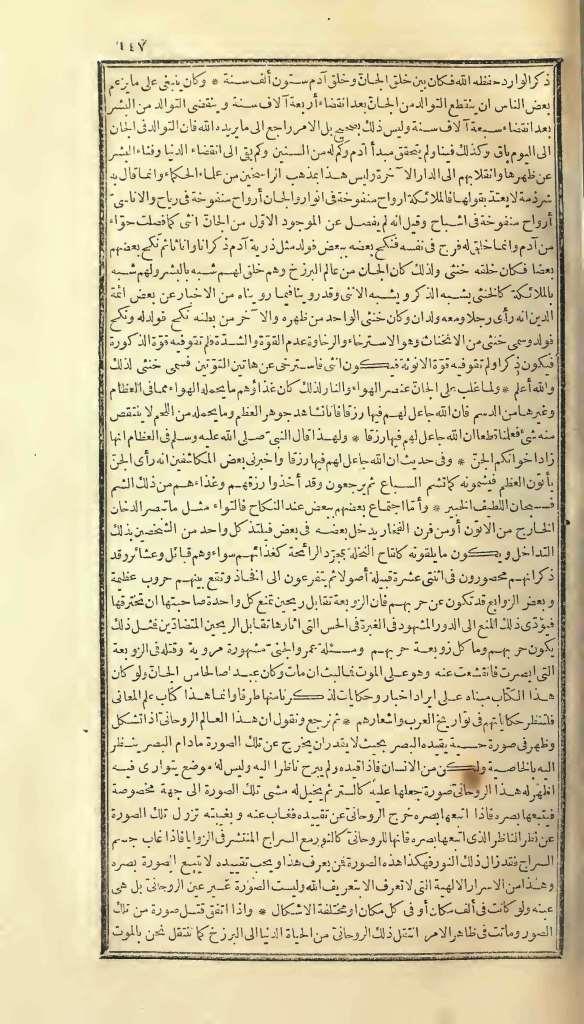 ١٤٧
ذكر الوارد حفظه الله فكان بين خلق الجان وخلق آدم ستون ألف سنة * وكان ينبغى على ما يزعم
بعض الناس ان ينقطع التوالد من الجان بعد انقضاء أربعة آلاف سنة وينقضى التوالد من البشر
بعد انقضاء سبعة آلاف سنة وليس ذلك بصحيح بل الامر راجع الى ما يريده الله فان التوالد فى الجان
الى اليوم باق وكذلك فينا ولم يتحقق مبدأ آدم وكم له من السنين وكم بقى الى انقضاء الدنيا وفناء البشر
عن ظهرها وانقلابهم الى الدار الآخرة وليس هذا بمذهب الراسخين من علماء الحكماء وانما قال به
شرذمة لا يعتد بقولها فالملائكة أرواح منفوخة فى انوار والجان أرواح منفوخة فى رياح والاناسىّ
أرواح منفوخة فى اشباح وقيل انه لم يفصل عن الموجود الاوّل من الجان انثى كما فصلت حوّاء
من آدم وانما خلق له فرج فى نفسه فنكح بعضه ببعض فولد مثل ذرية آدم ذكرانا واناثا ثم نكح بعضهم
بعضا فكان خلقه خنثى ولذلك كان الجان من عالم البرزخ وهم خلق لهم شبه بالبشر ولهم شبه
بالملائكة كالخنثى يشبه الذكر ويشبه الانثى وقد روينا فيما رويناه من الاخبار عن بعض ائمة
الدين انه رأى رجلا ومعه ولدان وكان خنثى الواحد من ظهره والآخر من بطنه نكح فولد له ونكح
فولد وسمى خنثى من الانخناث وهو الاسترخاء والرخاوة عدم القوّة والشدّة فلم تقو فيه قوّة الذكورة
فيكون ذكرا ولم تقو فيه قوّة الانوثة فيكون انثى فاسترخى عن هاتين القوّتين فسمى خنثى لذلك
والله أعلم * ولما غلب على الجان عنصر الهواء والنار لذلك كان غذاؤهم ما يحمله الهواء مما فى العظام
وغيرها من الدسم فان الله جاعل لهم فيها رزقا فانا نشاهد جوهر العظم وما يحمله من اللحم لا ينتقص
منه شئ فعلمنا قطعا ان الله جاعل لهم فيها رزقا * ولهذا قال النبىّ صلى الله عليه وسلم فى العظام انها
زاد اخوانكم الجنّ * وفى حديث ان الله جاعل لهم فيها رزقا واخبرنى بعض المكاشفين انه رأى الجنّ
يأتون العظم فيشمونه كما تشم السباع ثم يرجعون وقد أخذوا رزقهم وغذاءهم من ذلك الشم
فسبحان اللطيف الخبير * وأمّا اجتماع بعضهم ببعض عند النكاح فالتواء مثل ما تبصر الدخان
الخارج من الاتون أو من فرن الفخار يدخل بعضه فى بعض فيلتذ كل واحد من الشخصين بذلك
التداخل ويكون ما يلقونه كلقاح النخلة بمجرّد الرائحة كغذائهم سواء وهم قبائل وعشائر وقد
ذكر انهم محصورون فى اثنتى عشرة قبيلة أصولا ثم يتفرعون الى افخاذ وتقع بينهم حروب عظيمة
وبعض الزوابع قد تكون عن حربهم فان الزوبعة تقابل ريحين تمنع كل واحدة صاحبتها ان تخترقها
فيؤدى ذلك المنع الى الدور المشهود فى الغبرة فى الحس التى اثارها تقابل الريحين المتضادين فمثل ذلك
يكون حربهم وما كل زوبعة حربهم ومسئلة عمرو الجنىّ مشهورة مروية وقتله فى الزوبعة
التى ابصرت فانقشعت عنه وهو على الموت فما لبث ان مات وكان عبدا صالحا من الجان ولو كان
هذا الكتاب مبناه على ايراد اخبار وحكايات لذكرنا منها طرفا وانما هذا كتاب علم المعانى
فلتنظر حكاياتهم فى تواريخ العرب واشعارهم * ثم نرجع ونقول ان هذا العالم الروحانى اذا تشكل
وظهر فى صورة حسية يقيده البصر بحيث لا يقدر ان يخرج عن تلك الصورة ما دام البصر ينظر
اليه بالخاصية ولكن من الانسان فاذا قيده ولم يبرح ناظرا اليه وليس له موضع يتوارى فيه
اظهر له هذا الروحانى صورة جعلها عليه كالستر ثم يخيل له مشى تلك الصورة الى جهة مخصوصة
فيتبعها بصره فاذا اتبعها بصره خرج الروحانى عن تقييده فغاب عنه وبغيبته تزول تلك الصورة
عن نظر الناظر الذى اتبعها بصره فانها للروحانى كالنور مع السراج المنتشر فى الزوايا فاذا غاب جسم
السراج فقد زال ذلك النور فهكذا هذه الصورة فمن يعرف هذا ويحب تقييده لا يتبع الصورة بصره
وهذا من الاسرار الالهية التى لا تعرف الا بتعريف الله وليست الصورة غير عين الروحانى بل هى
عينه ولو كانت فى ألف مكان أو فى كل مكان ومختلفة الاشكال * واذا اتفق قتل صورة من تلك
الصور وماتت فى ظاهر الامر انتقل ذلك الروحانى من الحياة الدنيا الى البرزخ كما ننتقل نحن بالموت